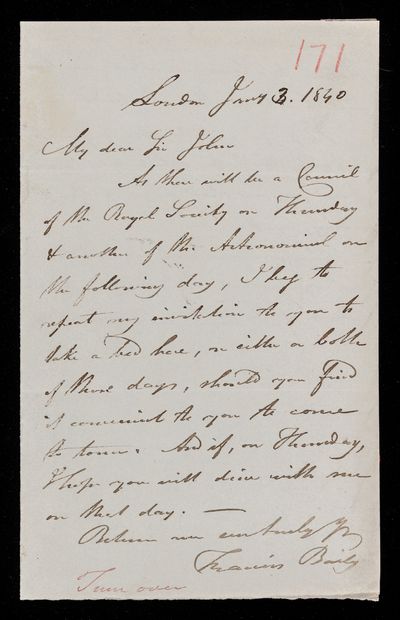 171
London Jany 3. 1840
My dear Sir John
As there will be a Council
of the Royal Society on Thursday
& another of the Astronomical on
the following day, I beg to
repeat my invitation to you to
take a bed here, on either or both
of those days, should you find
it convenient to you to come
to town. And if, on Thursday,
I hope you will dine with me
on that day. —
Believe me very truly yrs
Francis Baily
Turn over